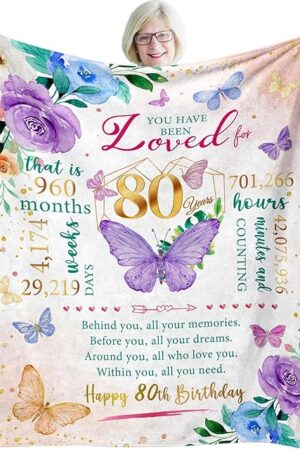 YOU HAVE
BEEN
Loved for
80 Years
that is
960
months
4,174
weeks
29,219
DAYS
701,266
hours
42,075,936
minutes and
COUNTING
Behind you, all your memories.
Before you, all your dreams.
Around you, all who love you.
Within you, all you need.
Happy 80th Birthday